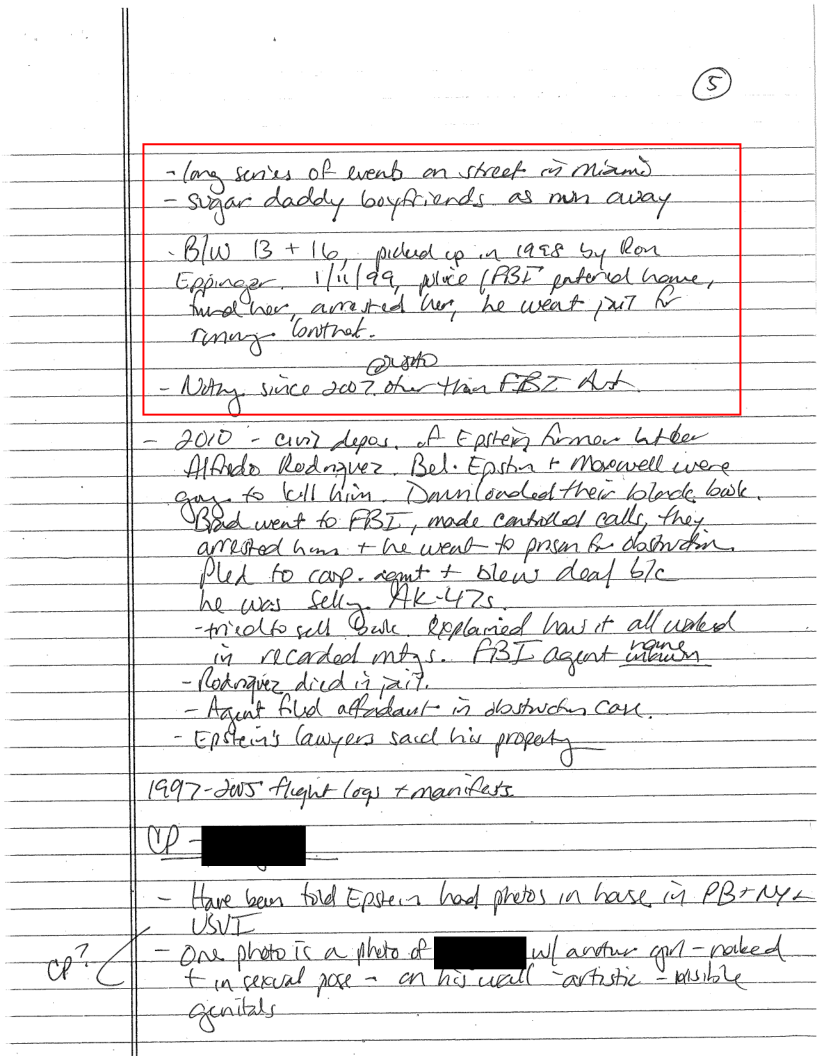 5
- long series of events on street in Miami
- sugar daddy boyfriends as run away
- B/W 13 + 16, picked up in 1998 by Ron
Eppinger. 1/11/99, police / FBI entered home,
found her, arrested her, he went jail for
running
@ USAO
- Nothng since 2007 other than FBI Aust.
- 2010 - civil depos. of Epstein former butler
Alfredo Rodriguez. Bel. Epstein + Maxwell were
gong to kill him. Downloaded their black book.
Brad went to FBI, made controlled calls, they
arrested him + he went to prison for obstruction.
Pled to coop. agmt + blew deal b/c
he was sellg AK-47s.
- tried to sell book. Explained how it all worked
in recorded mtgs. FBI agent name
unknown
- Rodriguez died in jail.
- Agent filed affadavit in obstruction case.
- Epstein's lawyers said his property
1997-2005 flight logs + manifests
CP -
- Have been told Epstein had photos in house in PB + NY +
USVI
CP? - One photo is a photo of w/ another girl - naked
+ in sexual pose - on his wall - artistic - visible
genitals